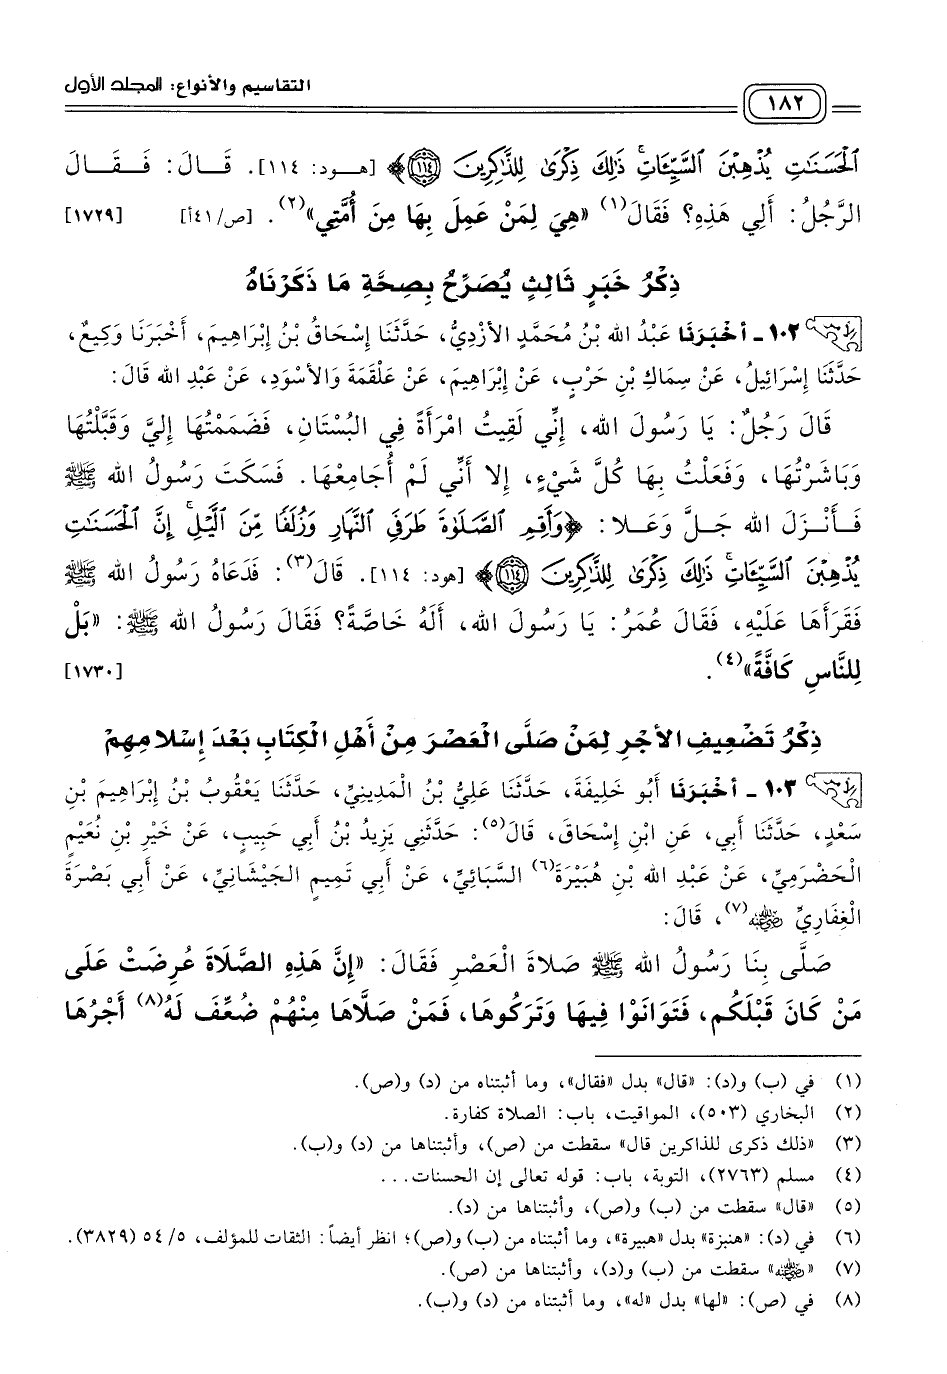 التقاسيم والأنواع: المجلد الأول
١٨٢
ٱلْحَسَنَٰتِ يُذْهِبْنَ ٱلسَّيِّـَٔاتِ ۚ ذَٰلِكَ ذِكْرَىٰ لِلذَّٰكِرِينَ ١١٤﴾ [هـود: ١١٤]. قَـالَ: فَـقَـالَ
الرَّجُلُ: أَلِي هَذِهِ؟ فَقَالَ(١) «هِيَ لِمَنْ عَمِلَ بِهَا مِنَ أُمَّتِي»(٢). [ص/٤١أ] [١٧٢٩]
ذِكْرُ خَبَرٍ ثَالِثٍ يُصَرِّحُ بِصِحَّةِ مَا ذَكَرْنَاهُ
١٠٢ ـ أخْبَرَنَا عَبْدُ الله بْنُ مُحَمَّدٍ الأزْدِيُّ، حَدَّثَنَا إِسْحَاقُ بْنُ إِبْرَاهِيمَ، أَخْبَرَنَا وَكِيعٌ،
حَدَّثَنَا إِسْرَائِيلُ، عَنْ سِمَاكِ بْنِ حَرْبٍ، عَنْ إِبْرَاهِيمَ، عَنْ عَلْقَمَةَ وَالأَسْوَدِ، عَنْ عَبْدِ الله قَالَ:
قَالَ رَجُلٌ: يَا رَسُولَ الله، إِنِّي لَقِيتُ امْرَأَةً فِي البُسْتَانِ، فَضَمَمْتُهَا إِلَيَّ وَقَبَّلْتُهَا
وَبَاشَرْتُهَا، وَفَعَلْتُ بِهَا كُلَّ شَيْءٍ، إِلا أَنِّي لَمْ أُجَامِعْهَا. فَسَكَتَ رَسُولُ الله ﷺ
فَـأَنْـزَلَ الله جَـلَّ وَعَـلا: ﴿وَأَقِمِ ٱلصَّلَوٰةَ طَرَفَيِ ٱلنَّهَارِ وَزُلَفًا مِّنَ ٱلَّيْلِ ۚ إِنَّ ٱلْحَسَنَٰتِ
يُذْهِبْنَ ٱلسَّيِّـَٔاتِ ۚ ذَٰلِكَ ذِكْرَىٰ لِلذَّٰكِرِينَ ١١٤﴾ [هود: ١١٤]. قَالَ(٣): فَدَعَاهُ رَسُولُ الله ﷺ
فَقَرَأَهَا عَلَيْهِ، فَقَالَ عُمَرُ: يَا رَسُولَ الله، أَلَهُ خَاصَّةً؟ فَقَالَ رَسُولُ الله ﷺ: «بَلْ
لِلنَّاسِ كَافَّةً»(٤). [١٧٣٠]
ذِكْرُ تَضْعِيفِ الأجْرِ لِمَنْ صَلَّى العَصْرَ مِنْ أَهْلِ الكِتَابِ بَعْدَ إِسْلامِهِمْ
١٠٣ ـ أخْبَرَنَا أَبُو خَلِيفَةَ، حَدَّثَنَا عَلِيُّ بْنُ الْمَدِينِيِّ، حَدَّثَنَا يَعْقُوبُ بْنُ إِبْرَاهِيمَ بْنِ
سَعْدٍ، حَدَّثَنَا أَبِي، عَنِ ابْنِ إِسْحَاقَ، قَالَ(٥): حَدَّثَنِي يَزِيدُ بْنُ أَبِي حَبِيبٍ، عَنْ خَيْرِ بْنِ نُعَيْمٍ
الحَضْرَمِيِّ، عَنْ عَبْدِ الله بْنِ هُبَيْرَةَ(٦) السَّبَائِيِّ، عَنْ أَبِي تَمِيمٍ الجَيْشَانِيِّ، عَنْ أَبِي بَصْرَةَ
الْغِفَارِيِّ رضي الله عنه(٧)، قَالَ:
صَلَّى بِنَا رَسُولُ الله ﷺ صَلاةَ الْعَصْرِ فَقَالَ: «إِنَّ هَذِهِ الصَّلَاةَ عُرِضَتْ عَلَى
مَنْ كَانَ قَبْلَكُم، فَتَوَانَوْا فِيهَا وَتَرَكُوهَا، فَمَنْ صَلَّاهَا مِنْهُمْ ضُعِّفَ لَهُ(٨) أَجْرُهَا
(١) في (ب) و(د): «قال» بدل «فقال»، وما أثبتناه من (د) و(ص).
(٢) البخاري (٥٠٣)، المواقيت، باب: الصلاة كفارة.
(٣) «ذلك ذكرى للذاكرين قال» سقطت من (ص)، وأثبتناها من (د) و(ب).
(٤) مسلم (٢٧٦٣)، التوبة، باب: قوله تعالى إن الحسنات...
(٥) «قال» سقطت من (ب) و(ص)، وأثبتناها من (د).
(٦) في (د): «هنبزة» بدل «هبيرة»، وما أثبتناه من (ب) و(ص)؛ انظر أيضاً: الثقات للمؤلف، ٥/ ٥٤ (٣٨٢٩).
(٧) «رضي الله عنه» سقطت من (ب) و(د)، وأثبتناها من (ص).
(٨) في (ص): «لها» بدل «له»، وما أثبتناه من (د) و(ب).